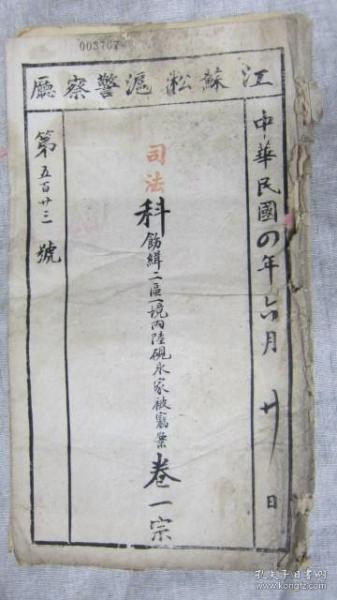 003767
江蘇淞滬警察廳
中華民國四年六月廿日
司法科飭緝二區一境內陸硯永家被竊業卷一宗
第五百廿三號
孔夫子旧书网